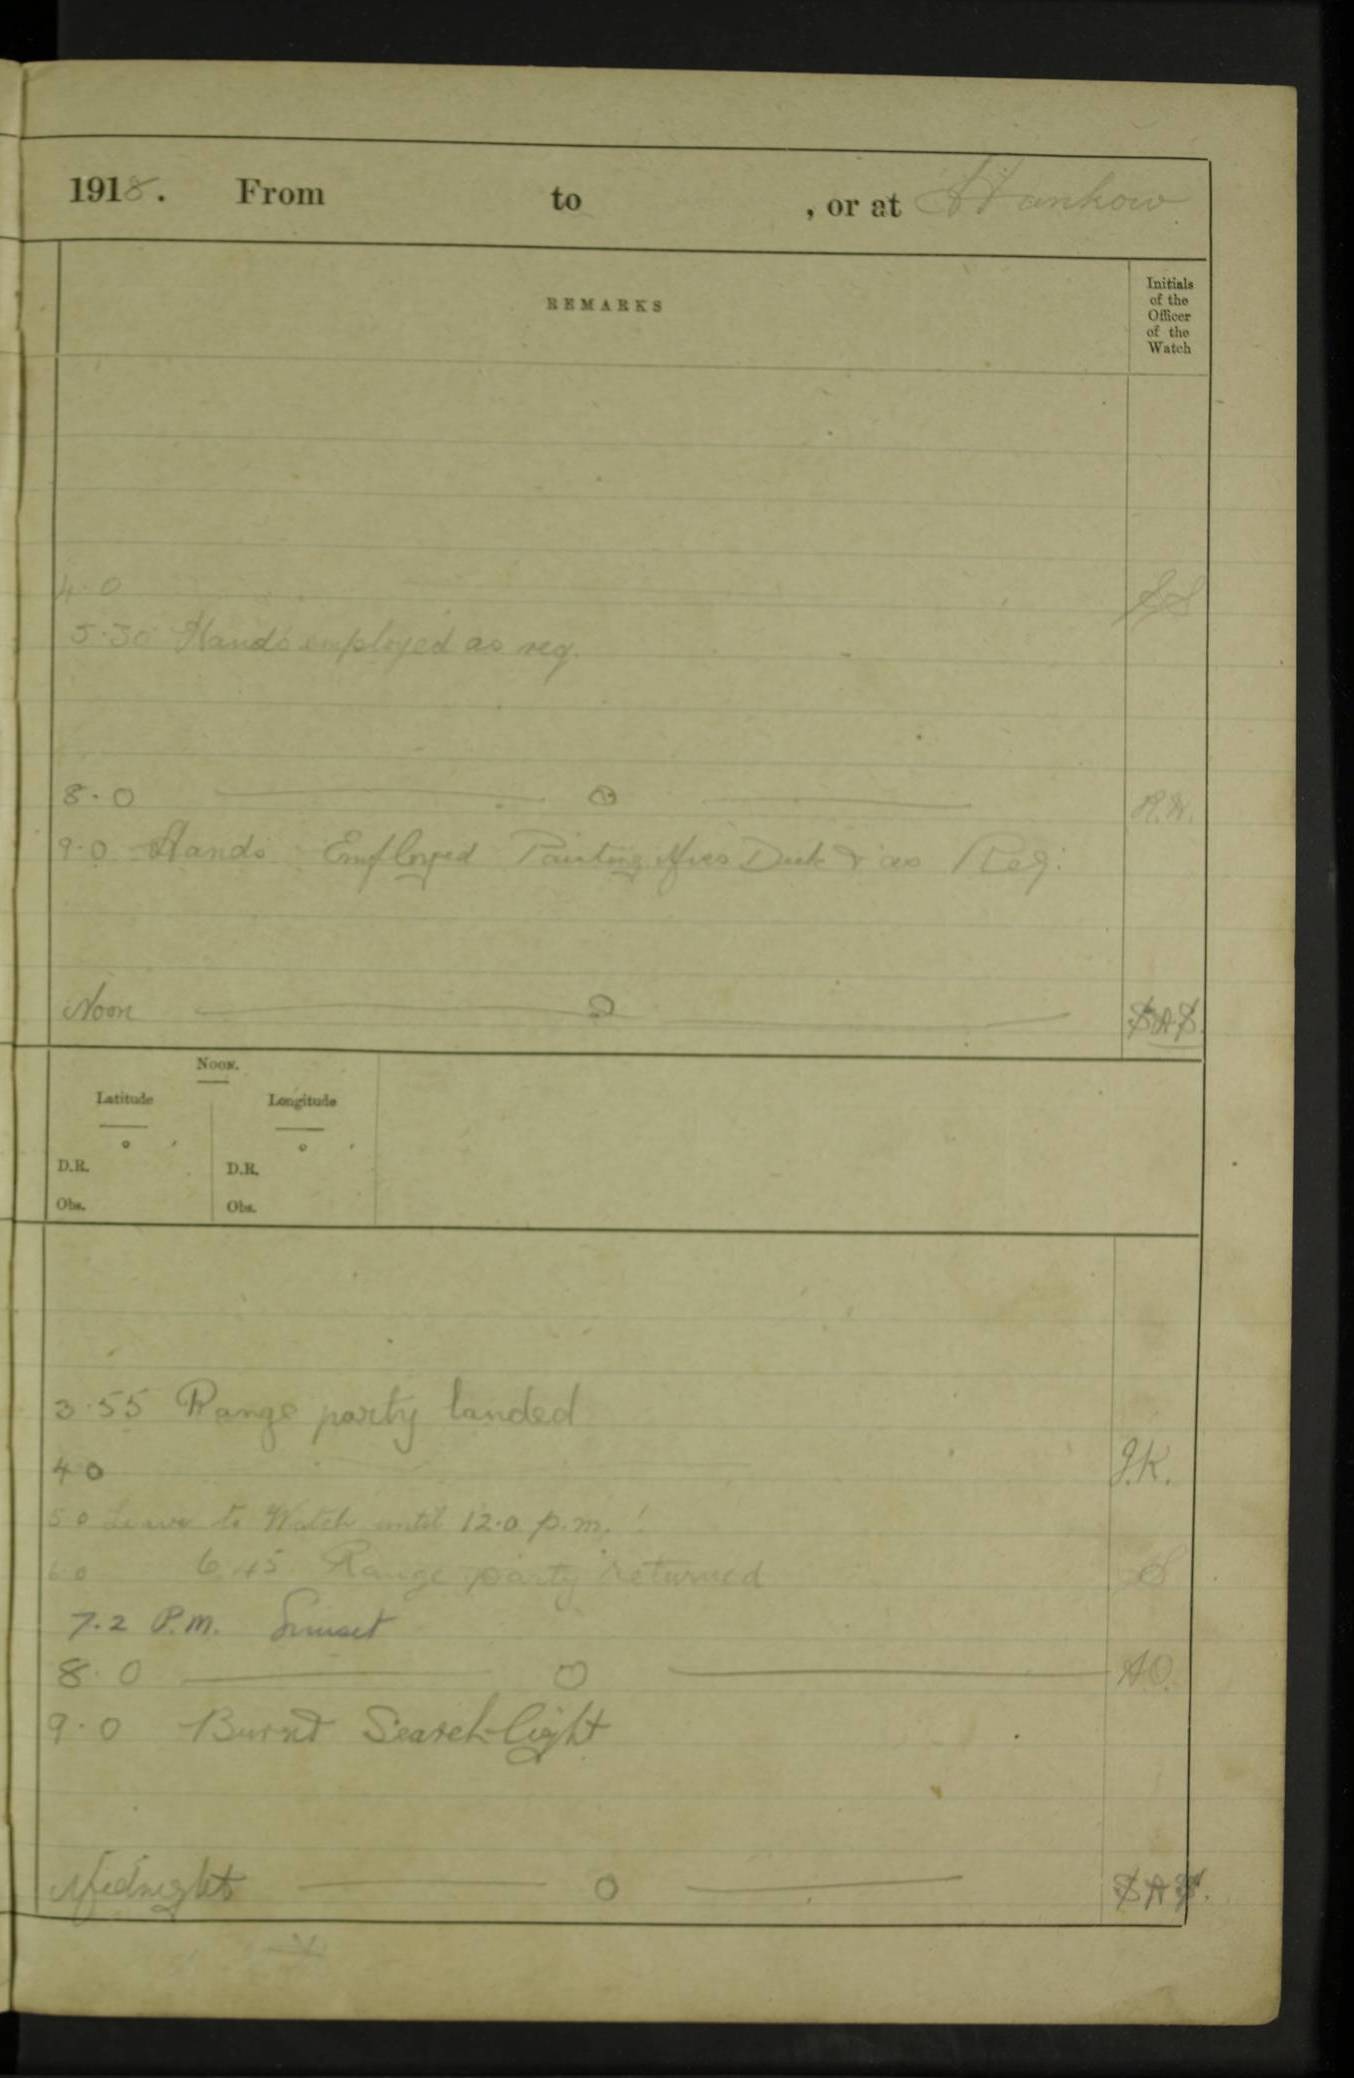 1918. From to , or at Hankow
REMARKS
Initials
of the
Officer
of the
Watch
4.0
5.30 Hands employed as req.
8.0 R.W.
9.0 Hands Employed Painting Mess Deck & as Req:
Noon S.A.S.
Noon.
Latitude Longitude
° ′ ° ′
D.R. D.R.
Obs. Obs.
3.55 Range party landed
4 0 J.K.
5 0 Leave to Watch until 12.0 p.m.
6 0 6.45 Range party returned
7.2 P.M. Sunset
8.0 A.O.
9.0 Burnt Search-light
Midnight S.A.S.